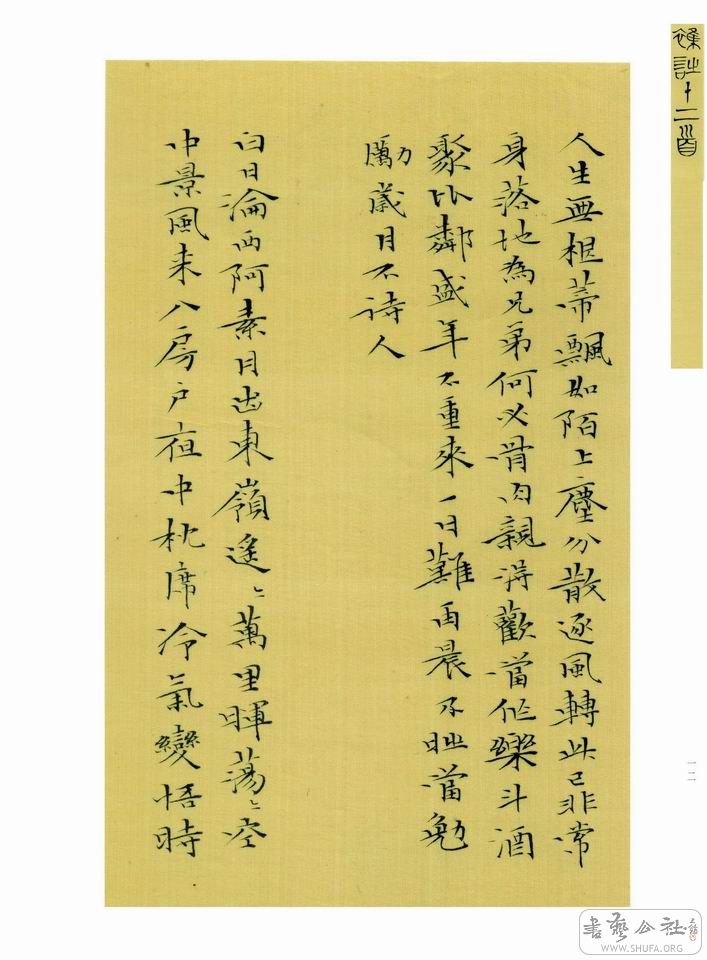 襍詩十二首
人生無根蒂飄如陌上塵分散逐風轉此已非常
身落地為兄弟何必骨肉親得歡當作樂斗酒
聚比鄰盛年不重來一日難再晨及時當勉
勵歲月不待人
白日淪西阿素月出東嶺遙〻萬里暉蕩〻空
中景風来入房戶夜中枕席冷氣變悟時
一二
書藝公社
WWW.SHUFA.ORG